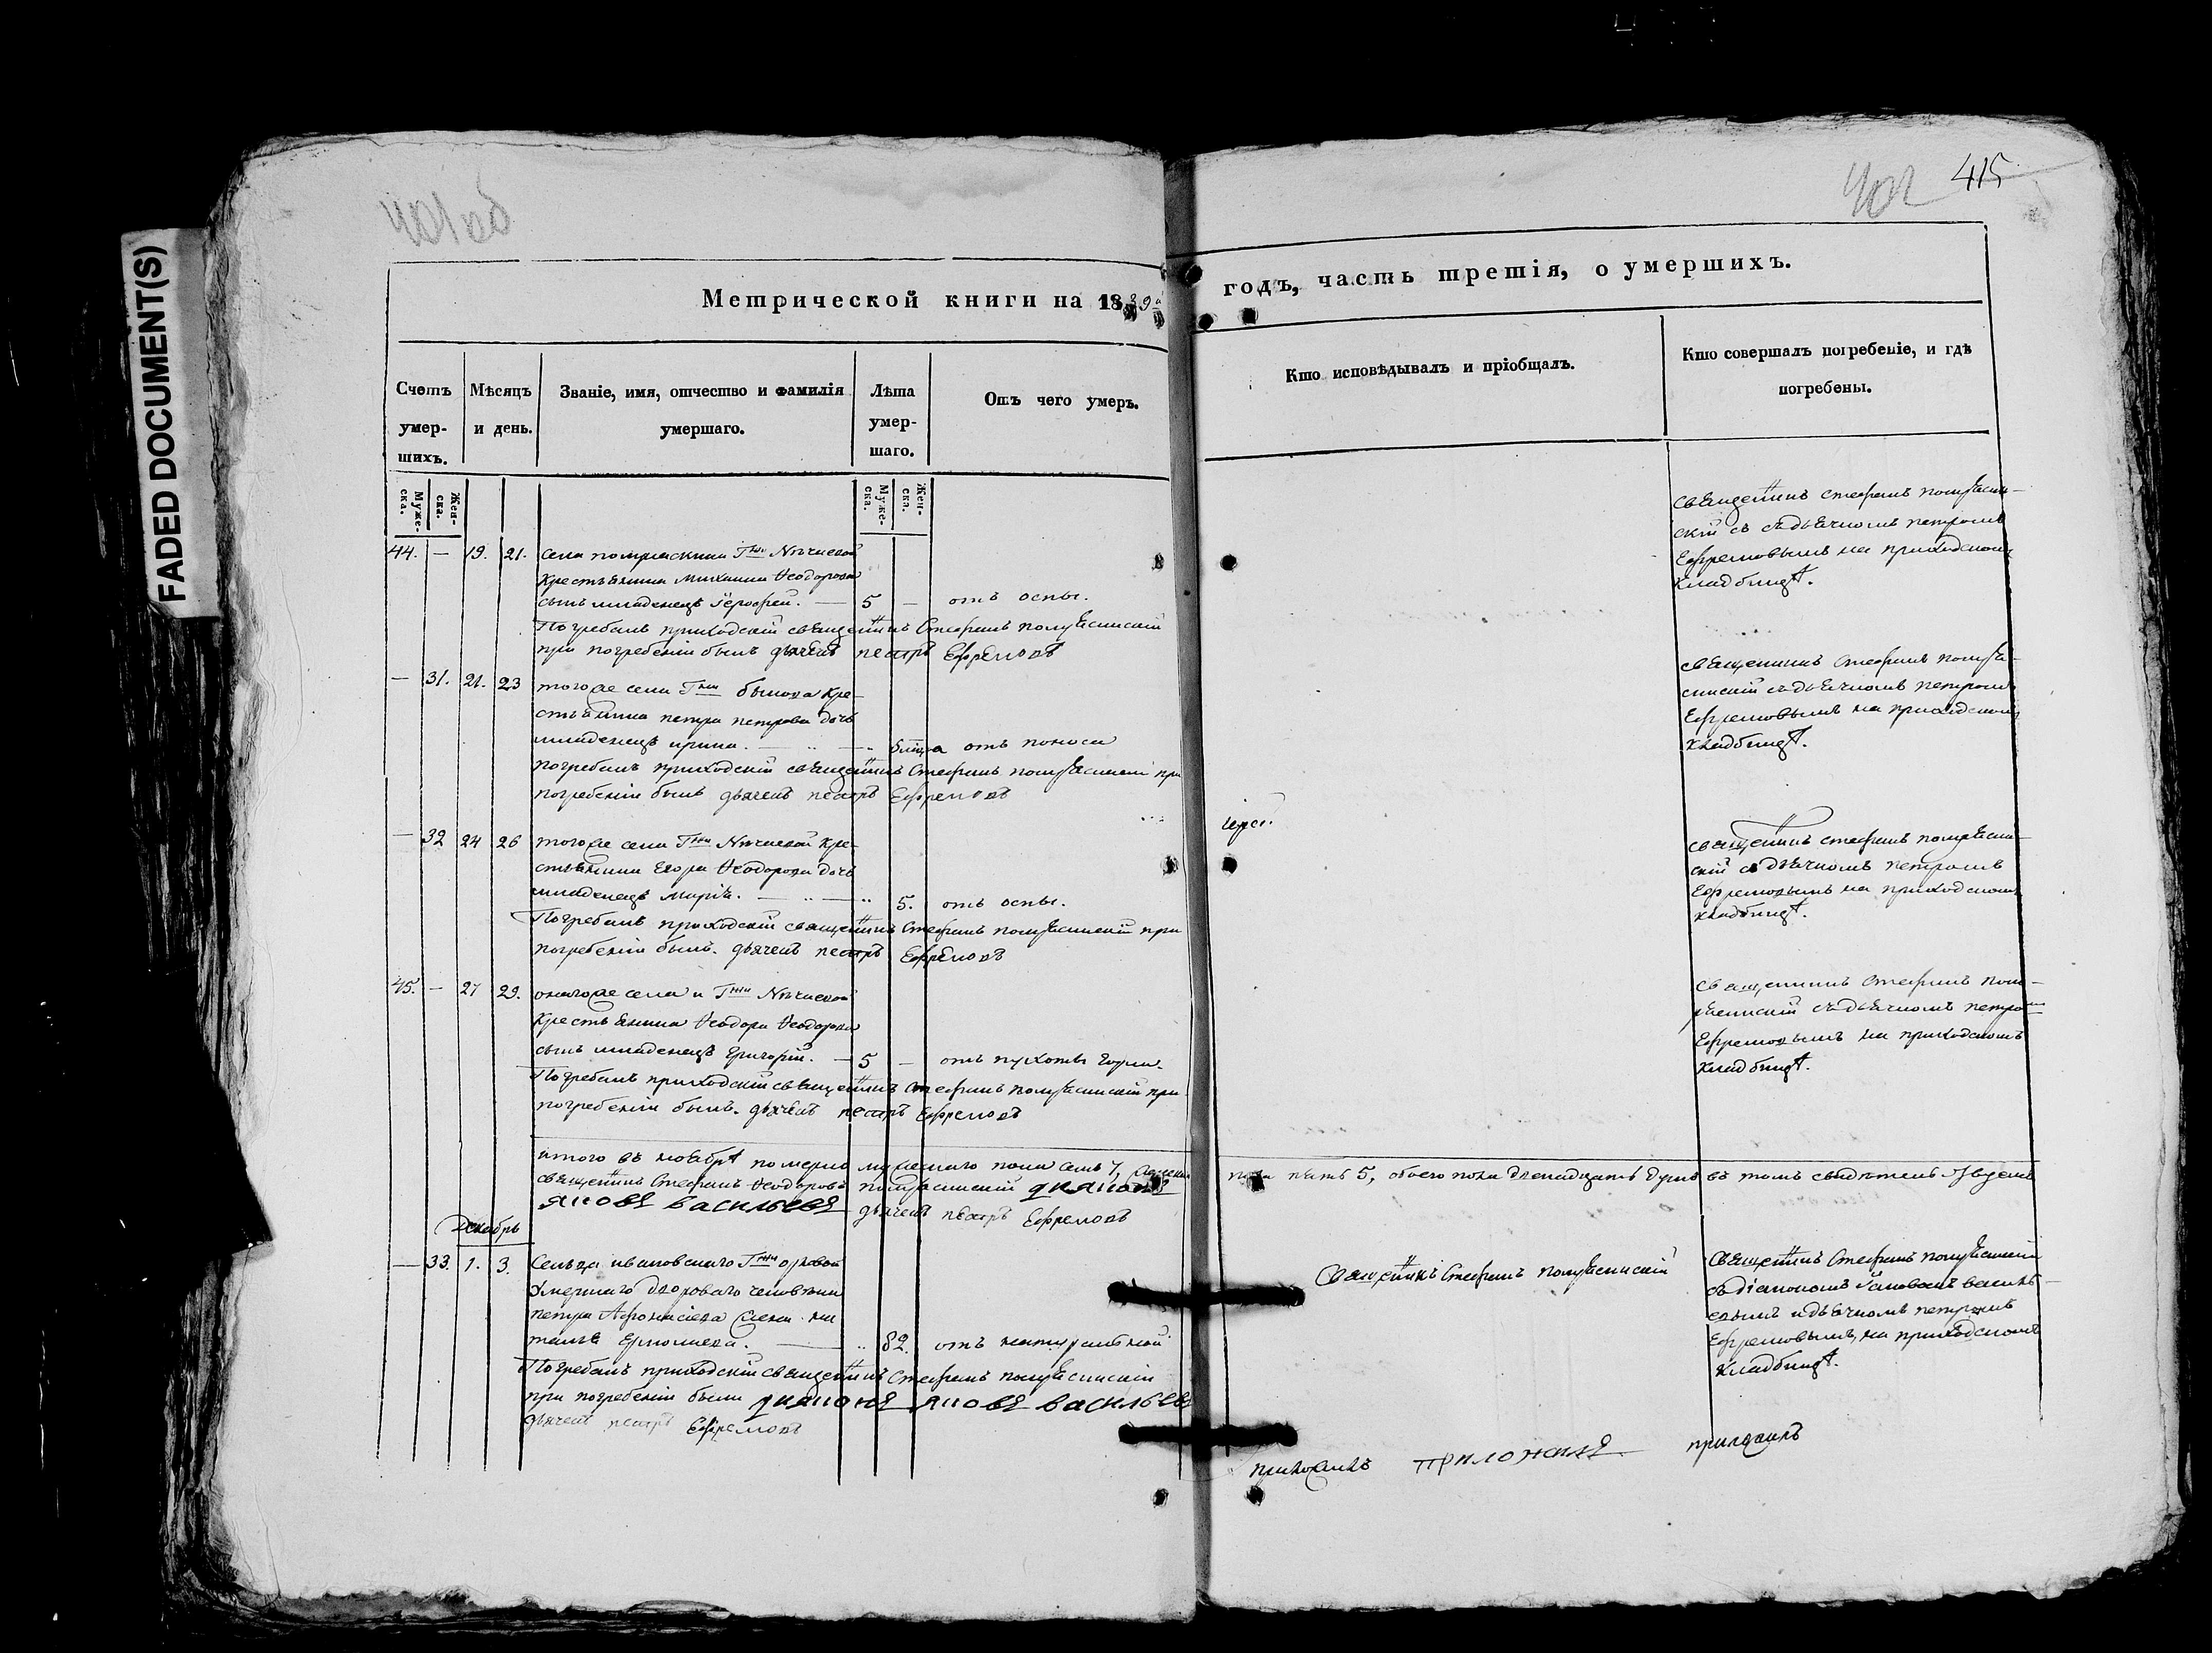 FADED DOCUMENT(S)
401 об
402 415
Метрической книги на 1839й
годъ, часть третія, о умершихъ.
Счетъ умер-шихъ.
Мѣсяцъ и день.
Званіе, имя, отчество и фамилія умершаго.
Лѣта умер-шаго.
Отъ чего умеръ.
Кто исповѣдывалъ и пріобщалъ.
Кто совершалъ погребеніе, и гдѣ погребены.
Муже-ска.
Жен-ска.
Муже-ска.
Жен-ска.
44. — 19. 21. села
крестьянина Михаила Ѳеодорова
сынъ младенецъ Іероѳей. — 5 — отъ оспы.
Погребалъ приходскій священникъ Стефанъ
при погребеніи былъ дьячекъ петръ Ефремовъ
священникъ стефанъ
скій съ дьячкомъ петромъ
Ефремовымъ на приходскомъ
кладбищѣ.
— 31. 21. 23 тогоже села Гжи кре-
стьянина петра петрова дочь
младенецъ ирина. — " — " отъ поноса
погребалъ приходскій священникъ Стефанъ при
погребеніи былъ дьячекъ петръ Ефремовъ
священникъ Стефанъ
съ дьячкомъ петромъ
Ефремовымъ на приходскомъ
кладбищѣ.
— 32 24 26 тогоже села Гжи кре-
стьянина Егора Ѳеодорова дочь
младенецъ марія. — " — " 5. отъ оспы.
Погребалъ приходскій священникъ Стефанъ при
погребеніи былъ. дьячекъ петръ Ефремовъ
священникъ стефанъ
скій съ дьячкомъ петромъ
Ефремовымъ на приходскомъ
кладбищѣ.
45. — 27 29. онагоже села и Гжи
крестьянина Ѳеодора Ѳеодорова
сынъ младенецъ Григорій. — 5 — отъ
Погребалъ приходскій священникъ Стефанъ при
погребеніи былъ. дьячекъ петръ Ефремовъ
священникъ Стефанъ
съ дьячкомъ петромъ
Ефремовымъ на приходскомъ
кладбищѣ.
итого въ ноябрѣ померло мужескаго пола семь 7, женска
пола пять 5, обоего пола двенадцать душъ въ томъ свидѣтельствуемъ
священникъ Стефанъ Ѳеодоровъ диаконъ
яковъ васильевъ дьячекъ петръ Ефремовъ
Декабрь
— 33. 1. 3. Сельца ивановскаго Гжи
умершаго двороваго человѣка
петра Афонасіева жена
Ермолаева. — " 82. отъ натуральной
Погребалъ приходскій священникъ Стефанъ
при погребеніи были диаконъ яковъ васильевъ
дьячекъ петръ Ефремовъ
Священникъ Стефанъ
Священникъ Стефанъ
съ діакономъ василь-
евымъ и дьячкомъ петромъ
Ефремовымъ, на приходскомъ
кладбищѣ.
приложилъ приложилъ приложилъ